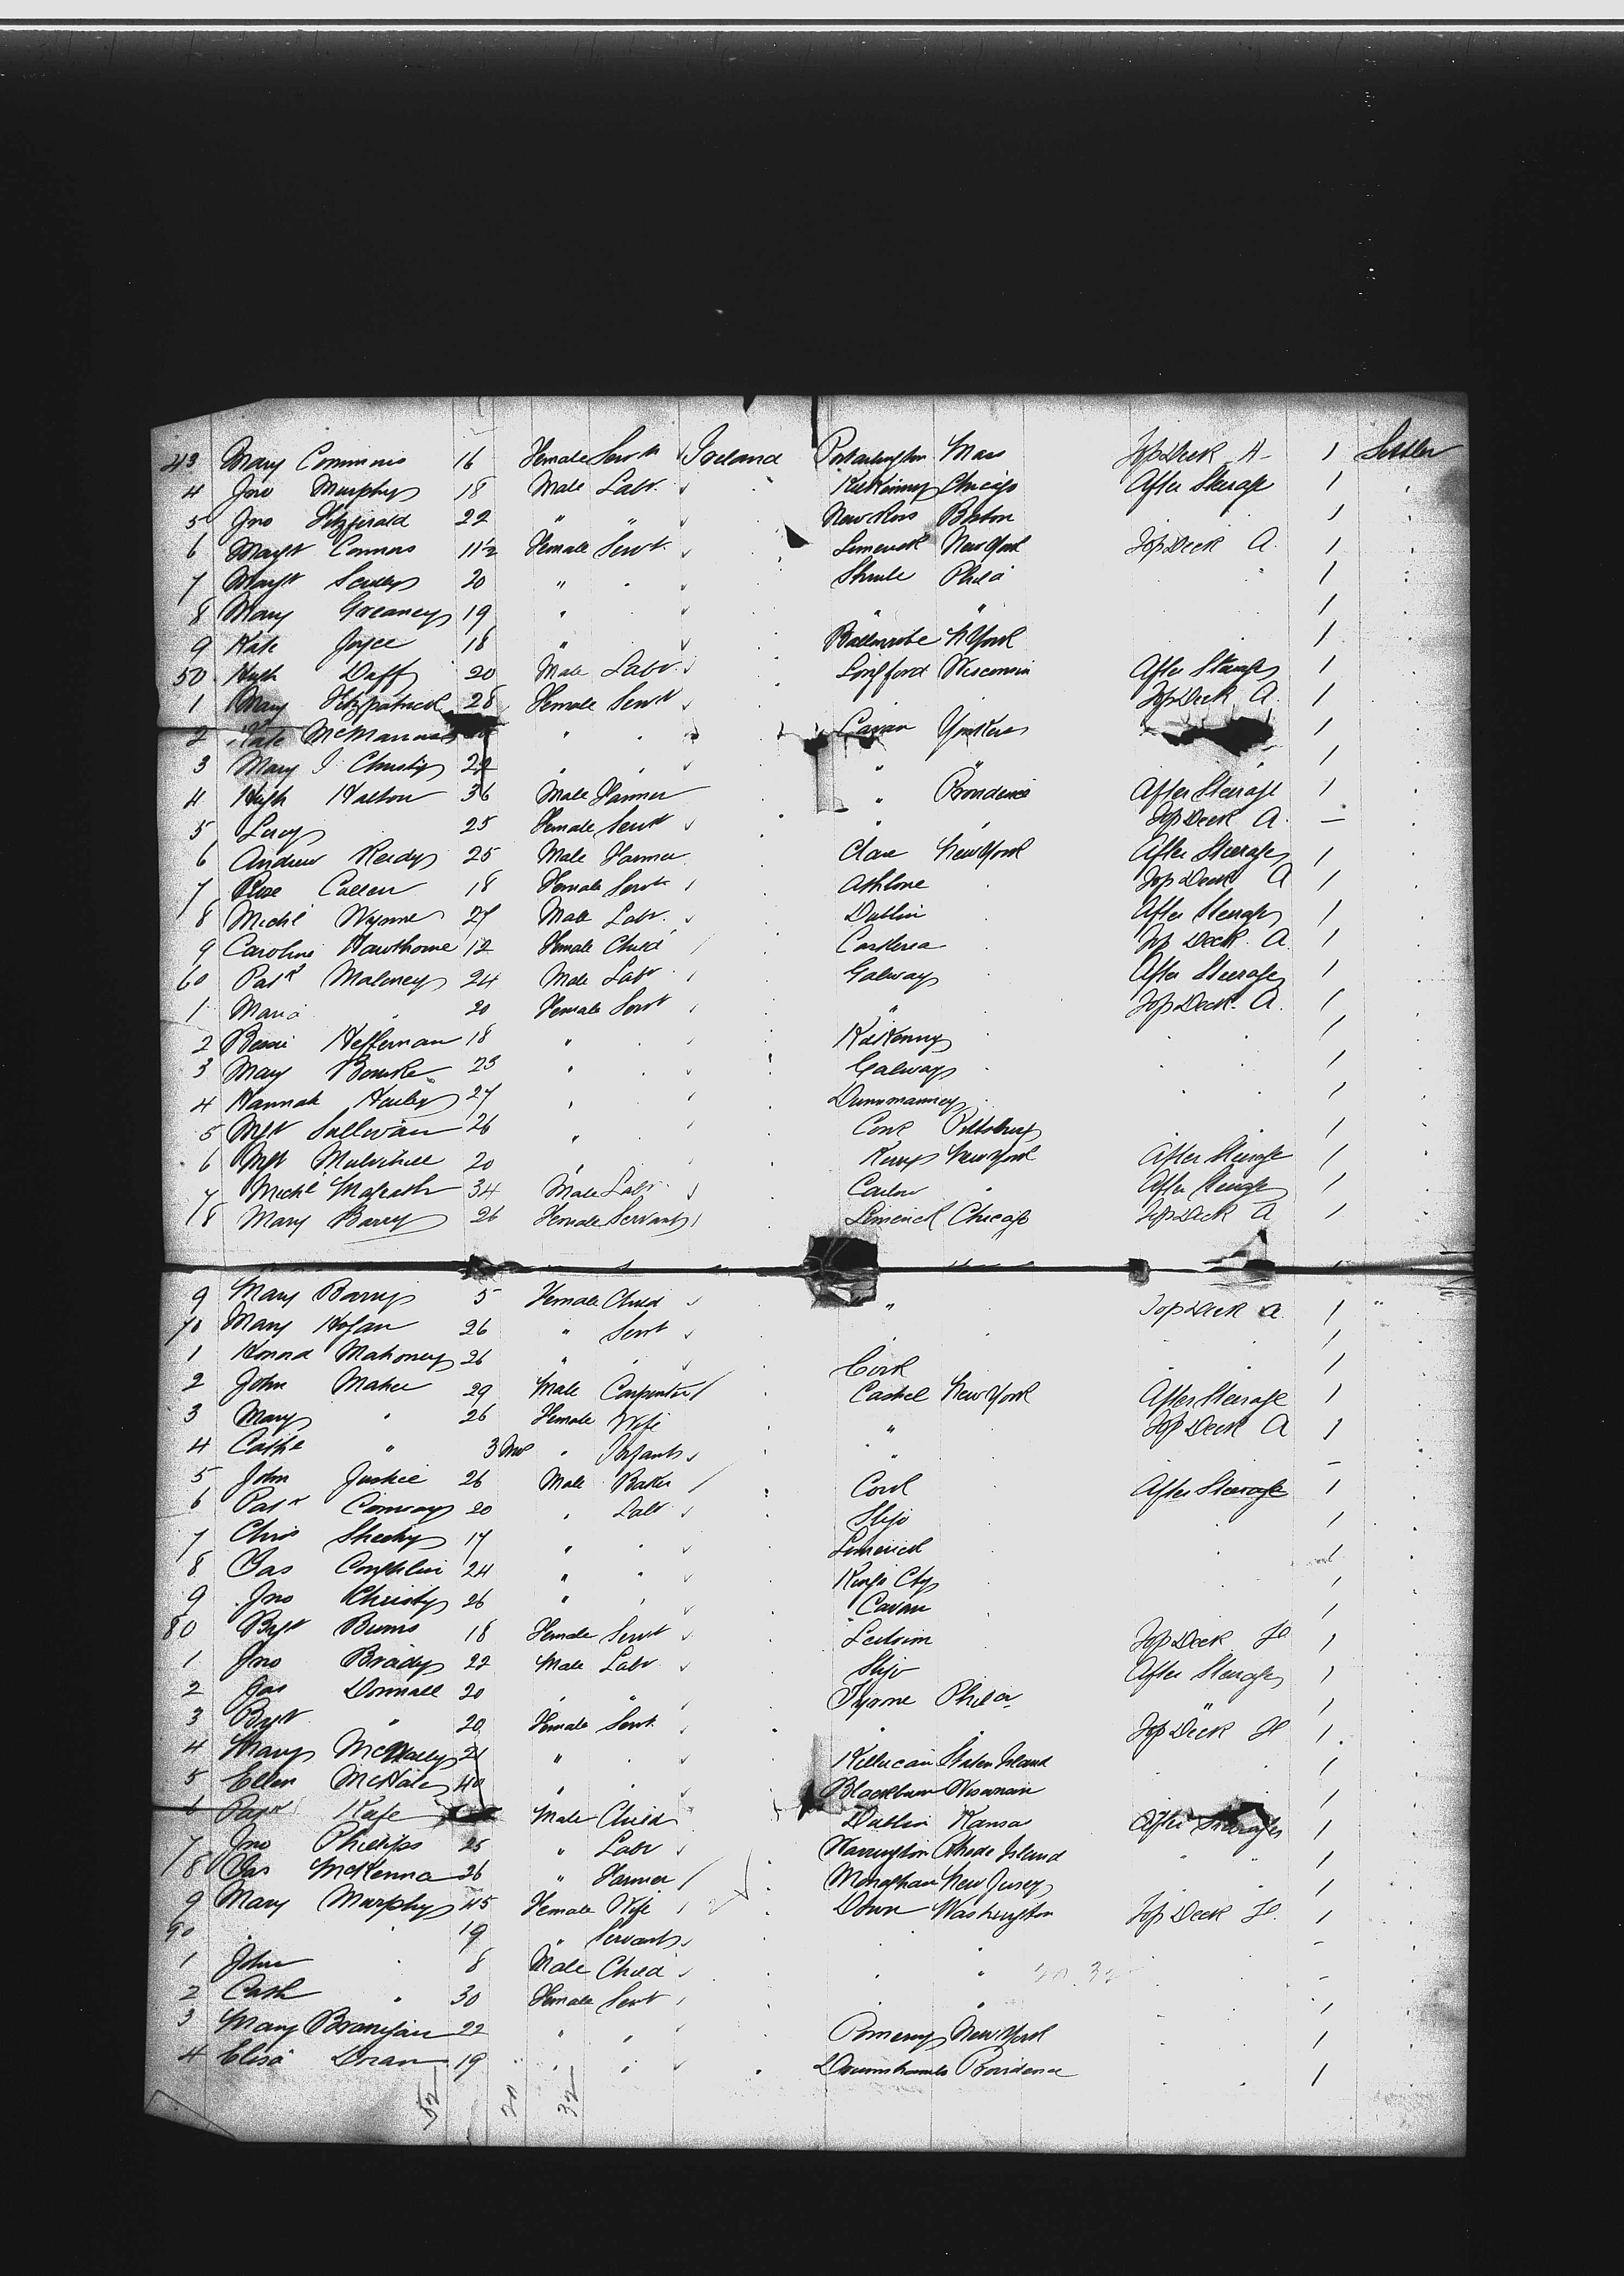 43 Mary Commins 16 Female Servt Ireland Portarlington Mass Top Deck A 1 Settler
4 Jno Murphy 18 Male Labr Kilkenny Chicago After Steerage 1
5 Jno Fitzgerald 22 " " New Ross Boston 1
6 Margt Connors 11½ Female Servt Limerick New York Top Deck A 1
7 Margt 20 " Shrule Phila 1
8 Mary Greaney 19 " " " 1
9 Kate Joyce 18 " Ballinrobe N York 1
50 Hugh Duffy 20 Male Labr Longford Wisconsin After Steerage 1
1 Mary Fitzpatrick 28 Female Servt Top Deck A 1
2 Kate McManus Cavan Yonkers 1
3 Mary J Christy 22 " " " " 1
4 Hugh Halton 36 Male Farmer " Providence After Steerage 1
5 Lucy 25 Female Servt " " Top Deck A —
6 Andrew Reidy 25 Male Farmer Clare New York After Steerage 1
7 Rose Cullen 18 Female Servt Athlone Top Deck A 1
8 Michl Wynne 27 Male Labr Dublin After Steerage 1
9 Caroline Hawthorne 12 Female Child Castlerea Top Deck A 1
60 Patk Maloney 24 Male Labr Galway After Steerage 1
1 Maria " 20 Female Servt " Top Deck A 1
2 Bessie Heffernan 18 " Kilkenny 1
3 Mary Bourke 25 " Galway 1
4 Hannah Hurley 27 " Dunmanney 1
5 Mgt Sullivan 26 " Cork Pittsburg 1
6 Mgt Mulvihill 20 " Kerry New York After Steerage 1
7 Michl Magrath 34 Male Labr Carlow " After Steerage 1
8 Mary Barry 26 Female Servant Limerick Chicago Top Deck A 1
9 Mary Barry 5 Female Child " Top Deck A 1 "
70 Mary Hogan 26 " Servt 1
1 Honora Mahoney 26 " " Cork 1
2 John Maher 29 Male Carpenter Cashel New York After Steerage 1
3 Mary " 26 Female Wife " Top Deck A 1
4 Cathe " 3 Mos " Infant " —
5 John 26 Male Baker Cork After Steerage 1
6 Patk Conway 20 " Labr Sligo 1
7 Chris Sheehy 17 " " Limerick 1
8 Jas Coughlin 24 " " Kings Cty 1
9 Jno Christy 26 " " Cavan 1
80 Bgt Burns 18 Female Servt Leitrim Top Deck 1
1 Jno Brady 22 Male Labr Sligo After Steerage 1
2 Jas Donnall 20 " " Tyrone Phila " 1
3 Bgt " 20 Female Servt " " Top Deck 1
4 Mary McNally 21 " " Killucan Staten Island 1
5 Ellen McHale 40 " " Blackburn Wisconsin 1
6 Patk Male Child Dublin Kansa After Steerage 1
7 Jno Phillips 25 " Labr Warrington Rhode Island " " 1
8 Jas McKenna 26 " Farmer Monaghan New Jersey 1
9 Mary Murphy 45 Female Wife Down Washington Top Deck 1
90 " " 19 " Servant —
1 John " 8 Male Child " " —
2 Cath " 30 Female Servt " " 1
3 Mary Branigan 22 " " Pomeroy New York 1
4 Eliza Doran 19 " " Providence 1
52 20 32